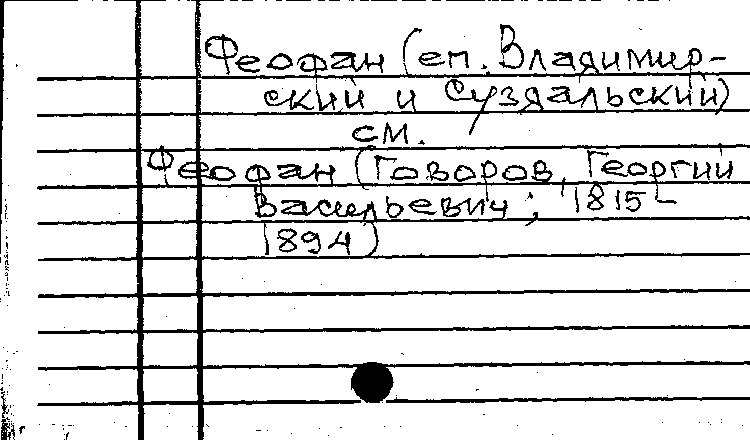 Феофан (еп. Владимир-
ский и Суздальский)
см.
Феофан (Говоров, Георгий
Васильевич; 1815-
1894)